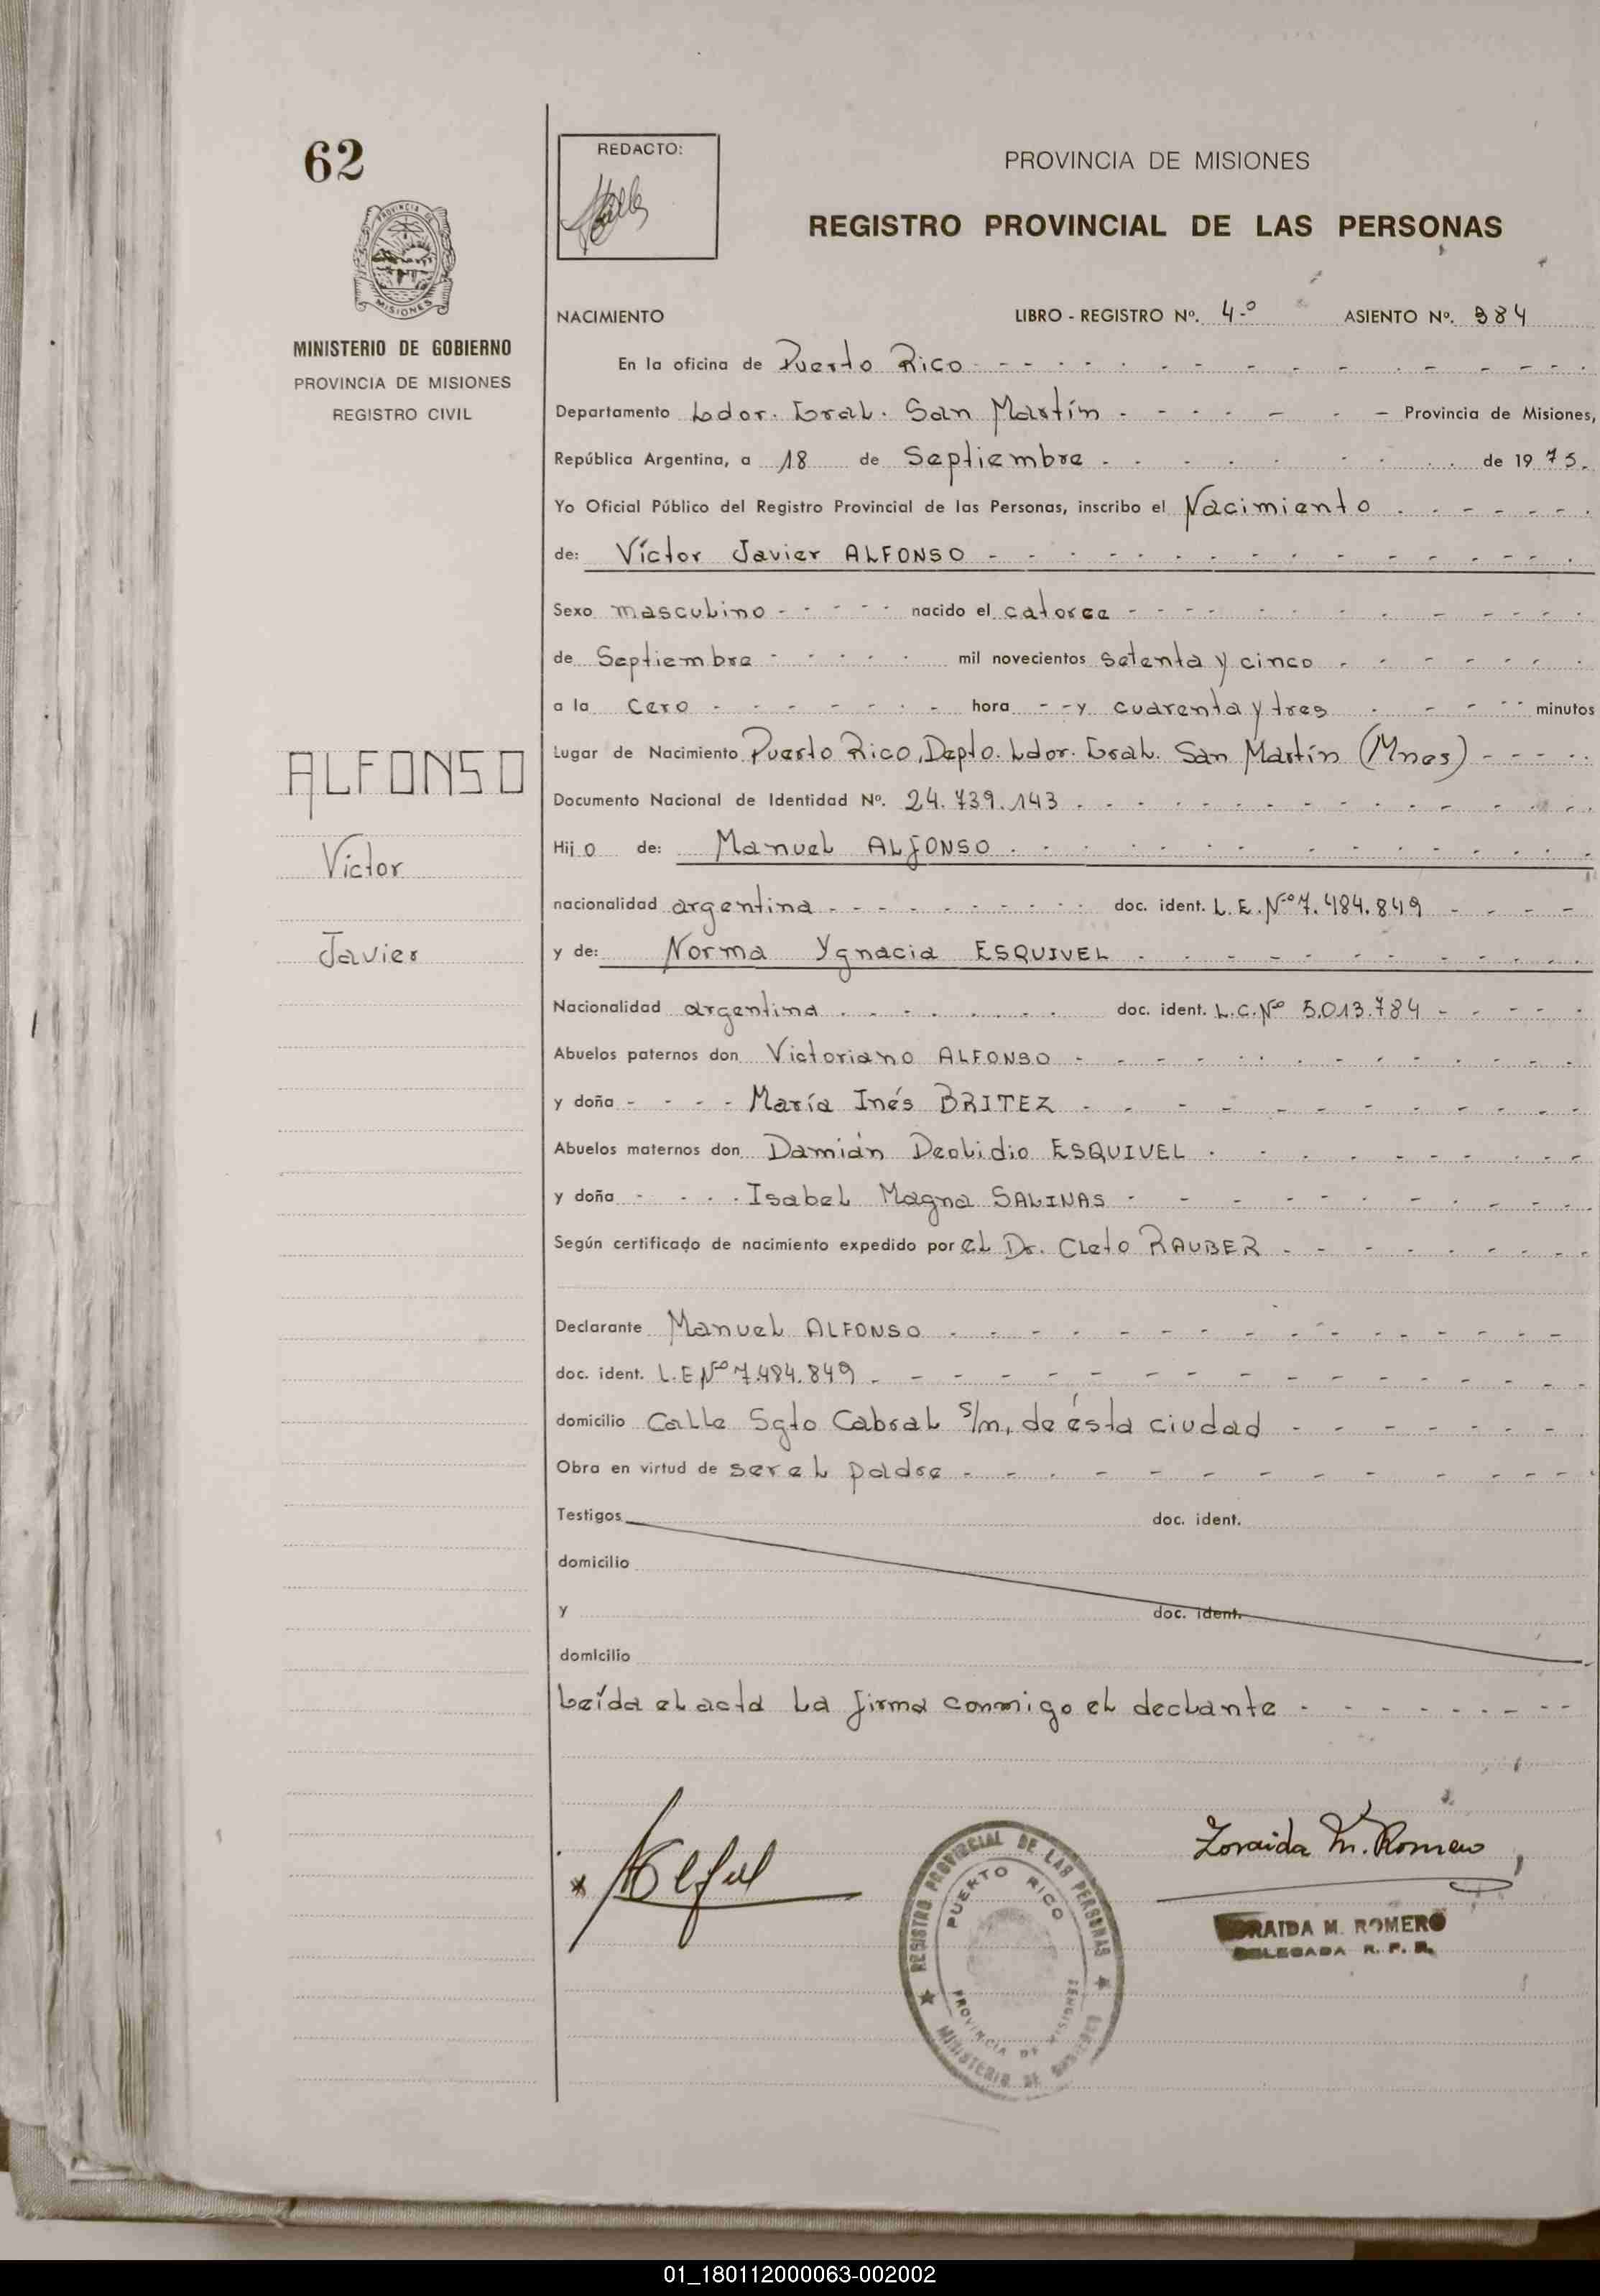 62
REDACTO:
PROVINCIA DE MISIONES
REGISTRO PROVINCIAL DE LAS PERSONAS
PROVINCIA DE
MISIONES
MINISTERIO DE GOBIERNO
PROVINCIA DE MISIONES
REGISTRO CIVIL
NACIMIENTO LIBRO - REGISTRO Nº. 4º ASIENTO Nº. 384
En la oficina de Puerto Rico
Departamento Ldor. Gral. San Martín Provincia de Misiones,
República Argentina, a 18 de Septiembre de 1975.
Yo Oficial Público del Registro Provincial de las Personas, inscribo el Nacimiento
de: Víctor Javier ALFONSO
Sexo masculino nacido el catorce
de Septiembre mil novecientos setenta y cinco
a la cero hora y cuarenta y tres minutos
Lugar de Nacimiento Puerto Rico, Depto. Ldor. Gral. San Martín (Mnes)
Documento Nacional de Identidad Nº. 24.739.143
Hijo de: Manuel ALFONSO
nacionalidad argentina doc. ident. L.E.Nº 7.484.849
y de: Norma Ygnacia ESQUIVEL
Nacionalidad argentina doc. ident. L.C.Nº 5.013.784
Abuelos paternos don Victoriano ALFONSO
y doña María Inés BRITEZ
Abuelos maternos don Damián Deolidio ESQUIVEL
y doña Isabel Magna SALINAS
Según certificado de nacimiento expedido por el Dr. Cleto RAUBER
Declarante Manuel ALFONSO
doc. ident. L.E.Nº 7.484.849
domicilio Calle Sgto Cabral s/n, de ésta ciudad
Obra en virtud de ser el padre
Testigos doc. ident.
domicilio
y doc. ident.
domicilio
Leída el acta la firma conmigo el declante
ALFONSO
Víctor
Javier
Zoraida M. Romero
REGISTRO PROVINCIAL DE LAS PERSONAS
PUERTO RICO
PROVINCIA DE MISIONES
MINISTERIO DE GOBIERNO
ZORAIDA M. ROMERO
DELEGADA R. P. P.
01_180112000063-002002